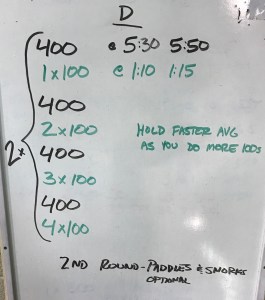 D
400 @ 5:30 5:50
1x100 @ 1:10 1:15
400
2x100
HOLD FASTER AVG
AS YOU DO MORE 100s
2x
400
3x100
400
4x100
2ND ROUND - PADDLES & SNORKS
OPTIONAL